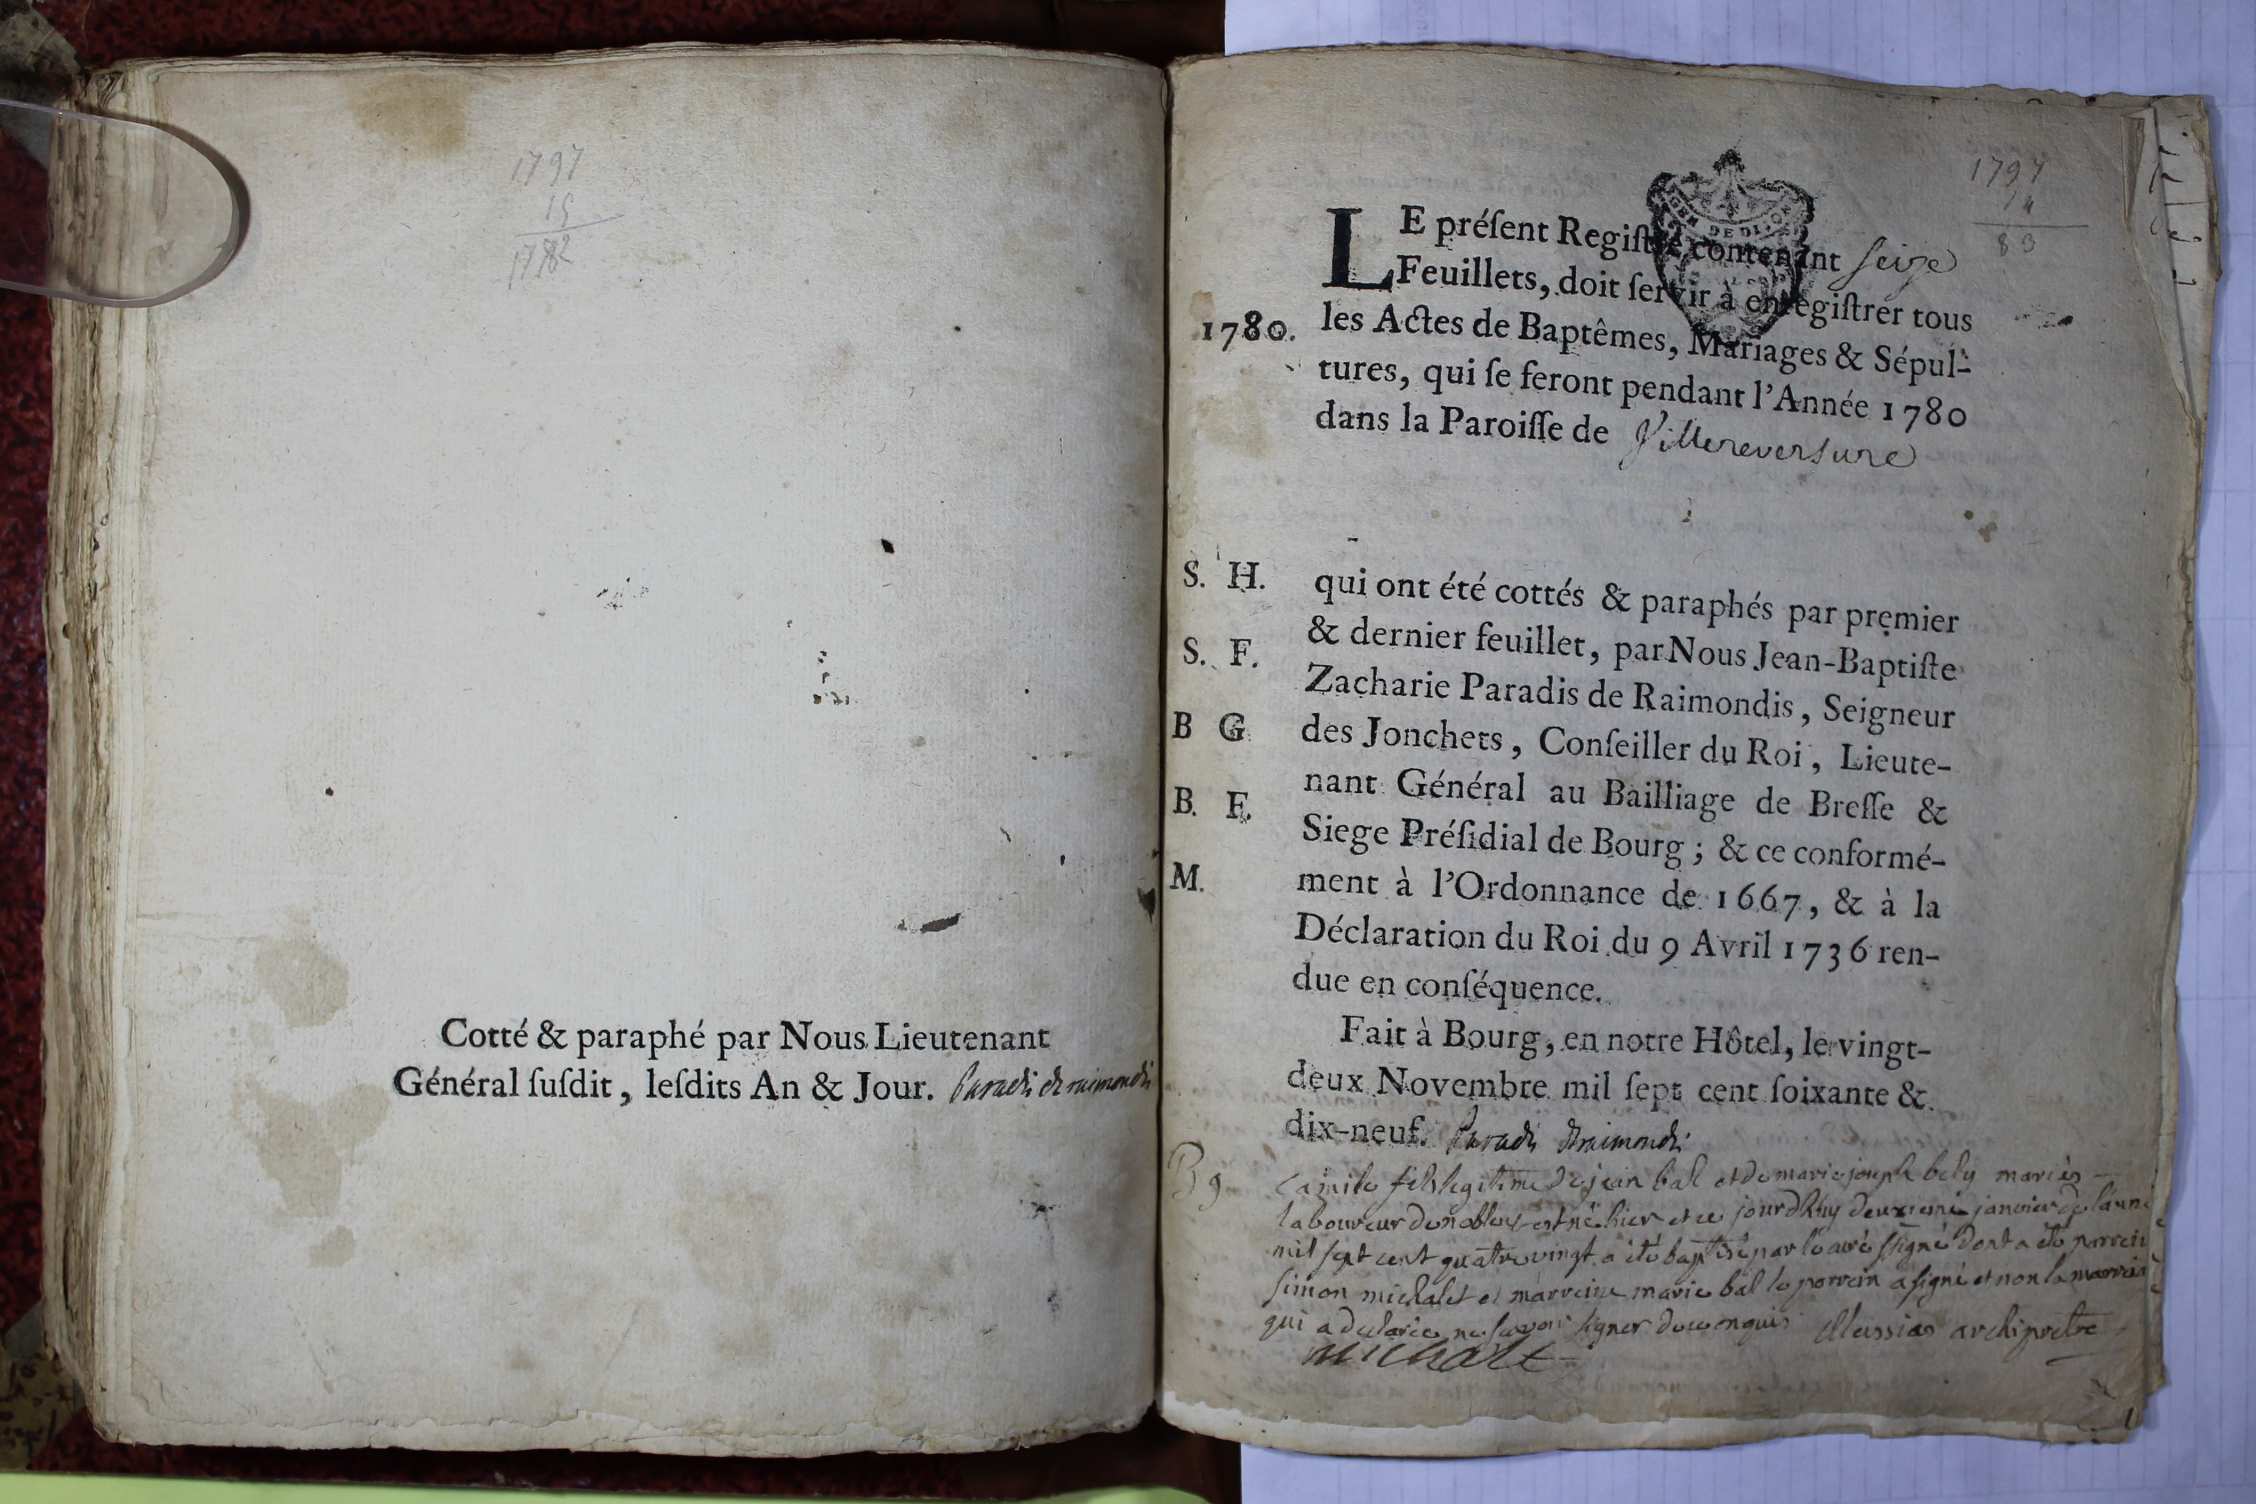 1797
15
1782
Cotté & paraphé par Nous Lieutenant
Général ſuſdit, leſdits An & Jour. Paradis de raimondis
1797
14
83
GEN DE DIJON
LE préſent Regiſtre contenant seize
Feuillets, doit ſervir à enregiſtrer tous
1780. les Actes de Baptêmes, Mariages & Sépul-
tures, qui ſe feront pendant l'Année 1780
dans la Paroiſſe de Villereversure
S. H. qui ont été cottés & paraphés par premier
& dernier feuillet, par Nous Jean-Baptiſte
S. F. Zacharie Paradis de Raimondis, Seigneur
B G des Jonchets, Conſeiller du Roi, Lieute-
nant Général au Bailliage de Breſſe &
B. F. Siege Préſidial de Bourg; & ce conformé-
M. ment à l'Ordonnance de 1667, & à la
Déclaration du Roi du 9 Avril 1736 ren-
due en conſéquence.
Fait à Bourg, en notre Hôtel, le vingt-
deux Novembre mil ſept cent ſoixante &
dix-neuf. Paradis de raimondis
B g Camile fils legitime de jean bal et de marie joseph bely mariés
laboureur de nobleus est né hier et ce jourdhuy deuxieme janvier de l'anné
mil sept cent quatre vingt a été baptisé par le curé ssigné dont a été parrein
simon michalet et marreine marie bal le parrein a signé et non la marreine
qui a declarée ne scavoir signer de ce enquis Messias archiprêtre
michalet
1